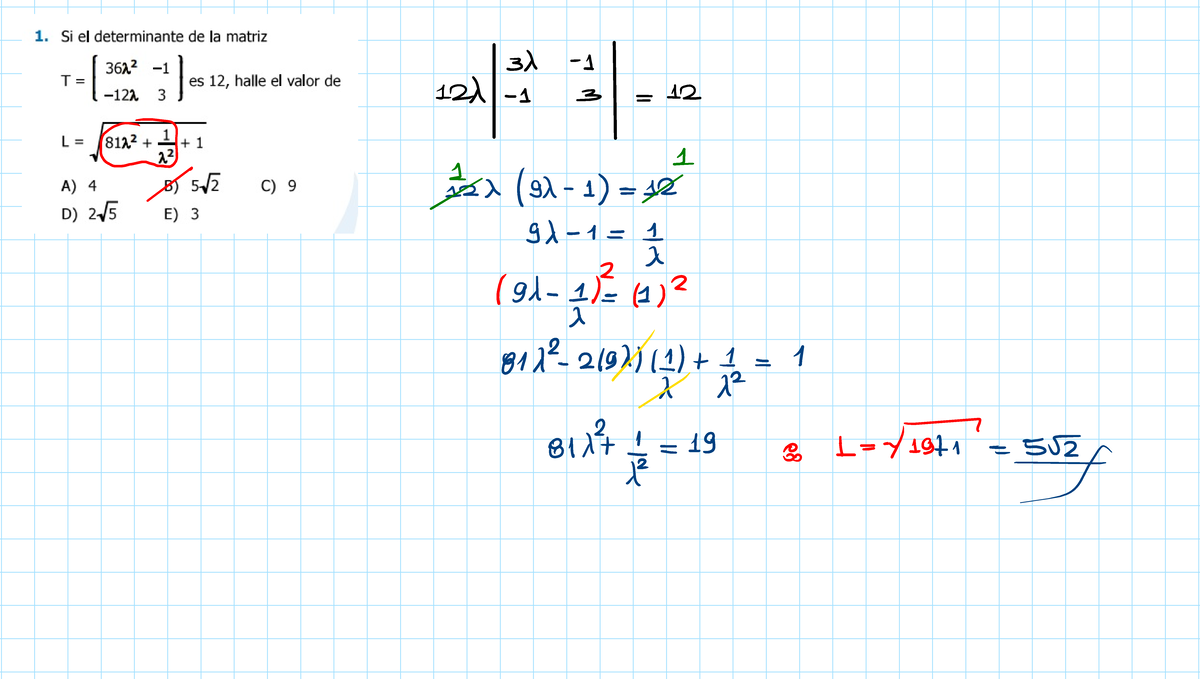 1. Si el determinante de la matriz
T = [ 36λ² -1
-12λ 3 ] es 12, halle el valor de
L = √(81λ² + 1/λ² + 1)
A) 4 B) 5√2 C) 9
D) 2√5 E) 3
12λ | 3λ -1
-1 3 | = 12
1 1
12λ (9λ - 1) = 12
9λ - 1 = 1/λ
(9λ - 1/λ)² = (1)²
81λ² - 2(9λ)(1/λ) + 1/λ² = 1
81λ² + 1/λ² = 19 L = √19+1 = 5√2